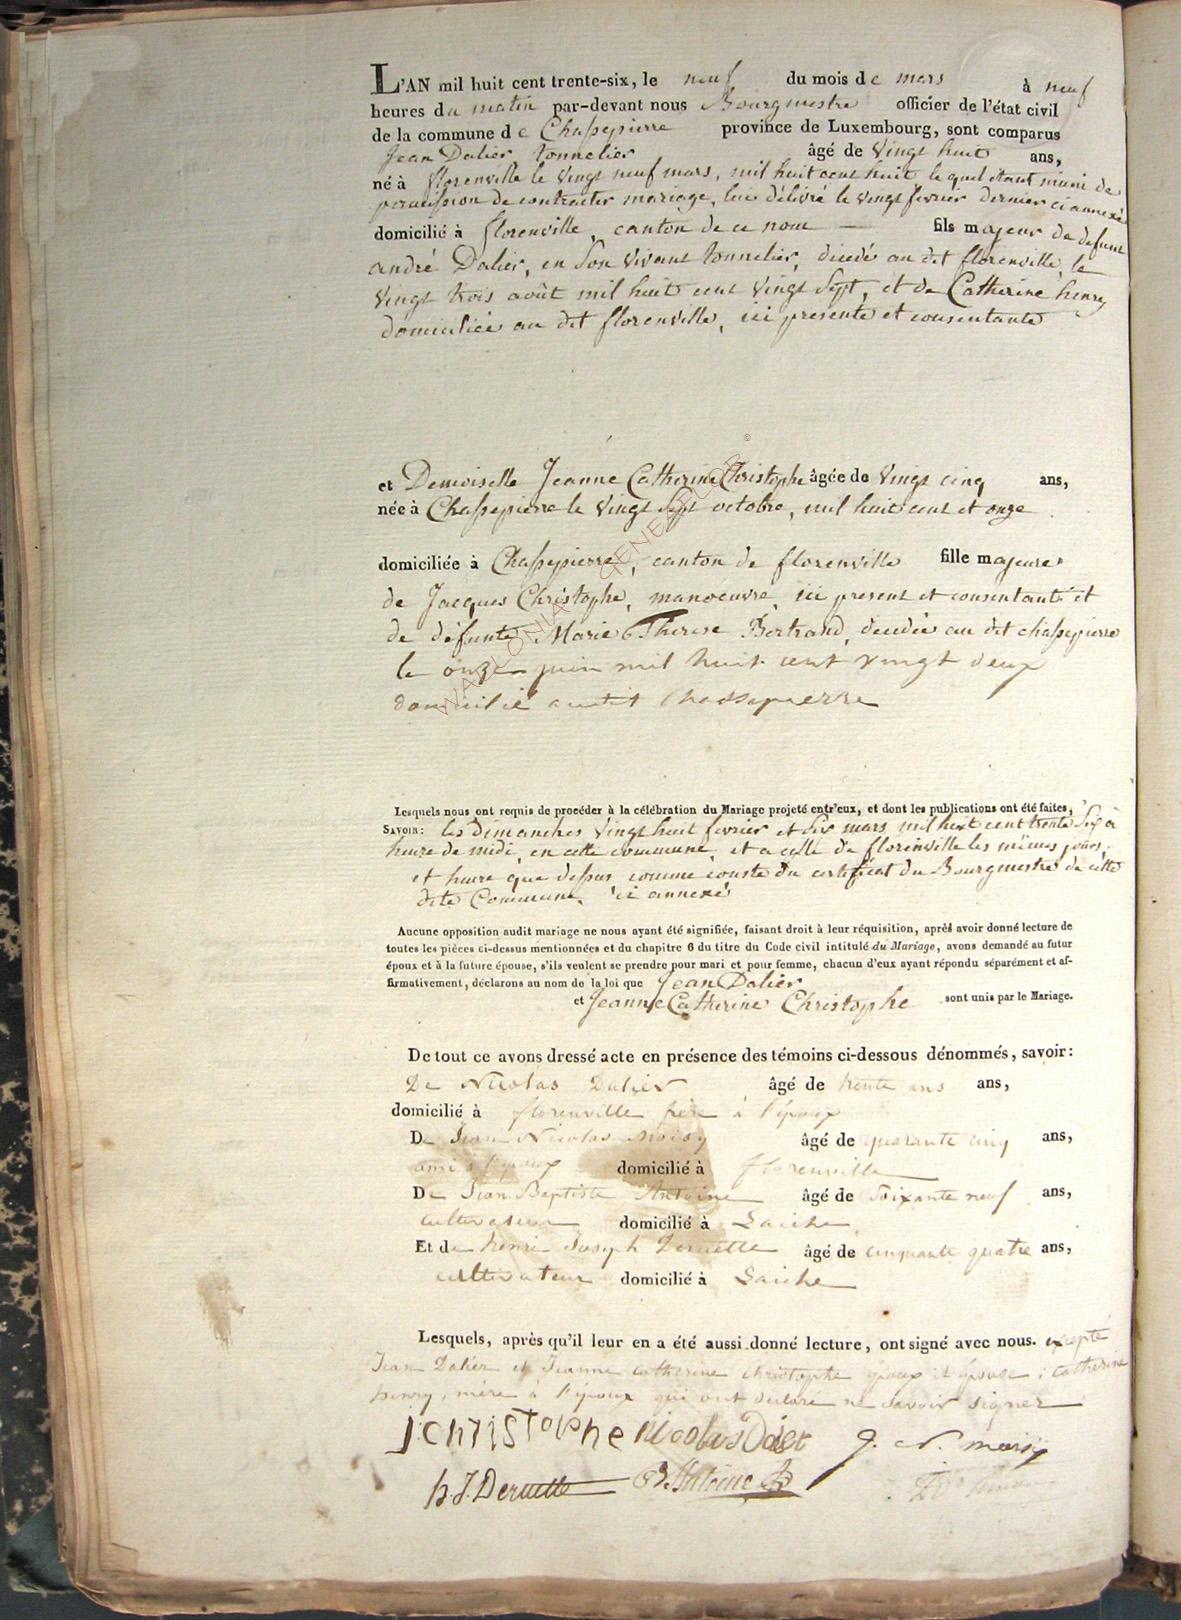 L'AN mil huit cent trente-six, le neuf du mois de mars à neuf
heures du matin par-devant nous Bourgmestre officier de l'état civil
de la commune de Chassepierre province de Luxembourg, sont comparus
Jean Dalier, tonnelier âgé de vingt huit ans,
né à florenville le vingt neuf mars, mil huit cent huit le quel étant muni de
permission de contracter mariage, lui délivré le vingt fevrier dernier ci annexée
domicilié à florenville, canton de ce nom fils majeur de defunt
andré Dalier, en son vivant tonnelier, décedé au dit florenville, le
vingt trois août mil huit cent vingt sept, et de Catherine henry
domiciliée au dit florenville, ici présente et consentante
et Demoiselle Jeanne Catherine Christophe âgée de vingt cinq ans,
née à Chassepierre le vingt sept octobre, mil huit cent et onze
domiciliée à Chassepierre, canton de florenville fille majeure
de Jacques Christophe, manoeuvre, ici present et consentant et
de défunte Marie Therese Bertrand, decedée au dit chassepierre
le onze juin mil huit cent vingt deux
domicilié audit Chassepierre
Lesquels nous ont requis de procéder à la célébration du Mariage projeté entr'eux, et dont les publications ont été faites,
SAVOIR: les dimanches vingt huit fevrier et six mars mil huit cent trente six à
heure de midi, en cette commune, et a celle de florenville les mêmes jours
et heure que dessus comme conste du certificat du Bourgmestre de cette
dite Commune, ici annexé
Aucune opposition audit mariage ne nous ayant été signifiée, faisant droit à leur réquisition, après avoir donné lecture de
toutes les pièces ci-dessus mentionnées et du chapitre 6 du titre du Code civil intitulé du Mariage, avons demandé au futur
époux et à la future épouse, s'ils veulent se prendre pour mari et pour femme, chacun d'eux ayant répondu séparément et af-
firmativement, déclarons au nom de la loi que Jean Dalier
et Jeanne Catherine Christophe sont unis par le Mariage.
De tout ce avons dressé acte en présence des témoins ci-dessous dénommés, savoir:
De Nicolas Dalier âgé de trente ans ans,
domicilié à florenville frère à l'époux
De Jean Nicolas âgé de quarante cinq ans,
ami à l'époux domicilié à florenville
De Jean Baptiste Antoine âgé de soixante neuf ans,
cultivateur domicilié à Laiche
Et de henri Joseph Deruette âgé de cinquante quatre ans,
cultivateur domicilié à Laiche
Lesquels, après qu'il leur en a été aussi donné lecture, ont signé avec nous. excepté
Jean Dalier et Jeanne catherine christophe époux et épouse; catherine
henry, mère à l'époux qui ont déclaré ne savoir signer
J christophe nicolas Dalier J. N.
h. J. Deruette Antoine
WALLONIA GENEALOGY